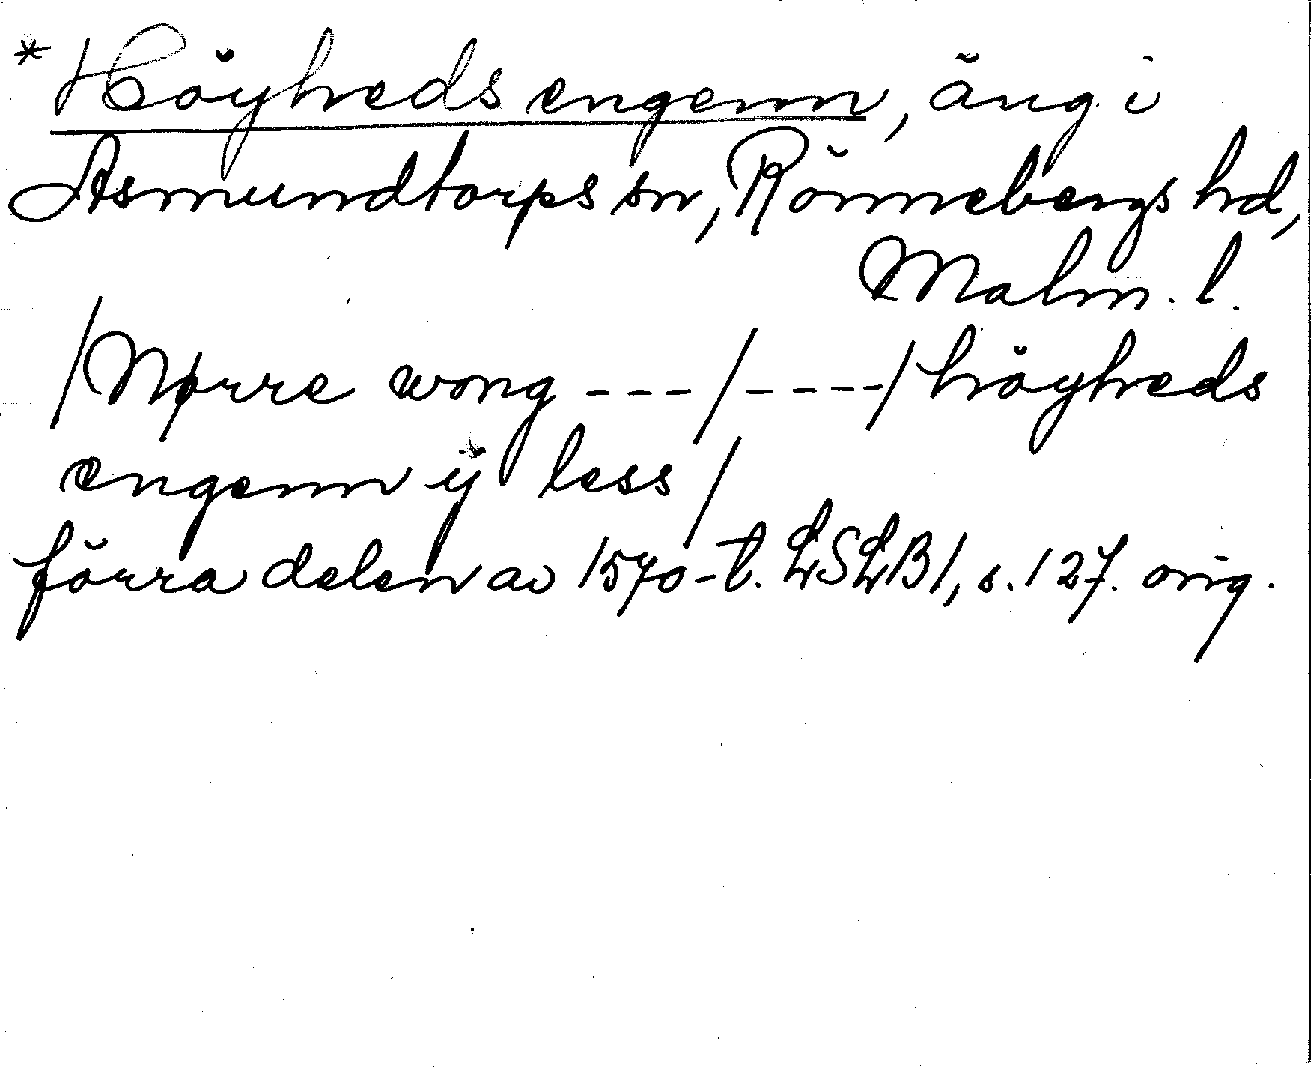 *Höyheds engenn, äng i
Asmundtorps sn, Rönnebergs hd,
Malm. l.
/Nørre wong ---/----/höyheds
engenn ij less/
förra delen av 1570-t. LSLB1, s. 127. orig.